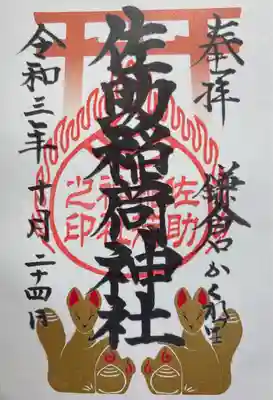 奉拝
鎌倉かくれ里
佐助稲荷神社
佐助
稲荷
神社
之印
令和三年十月二十四日